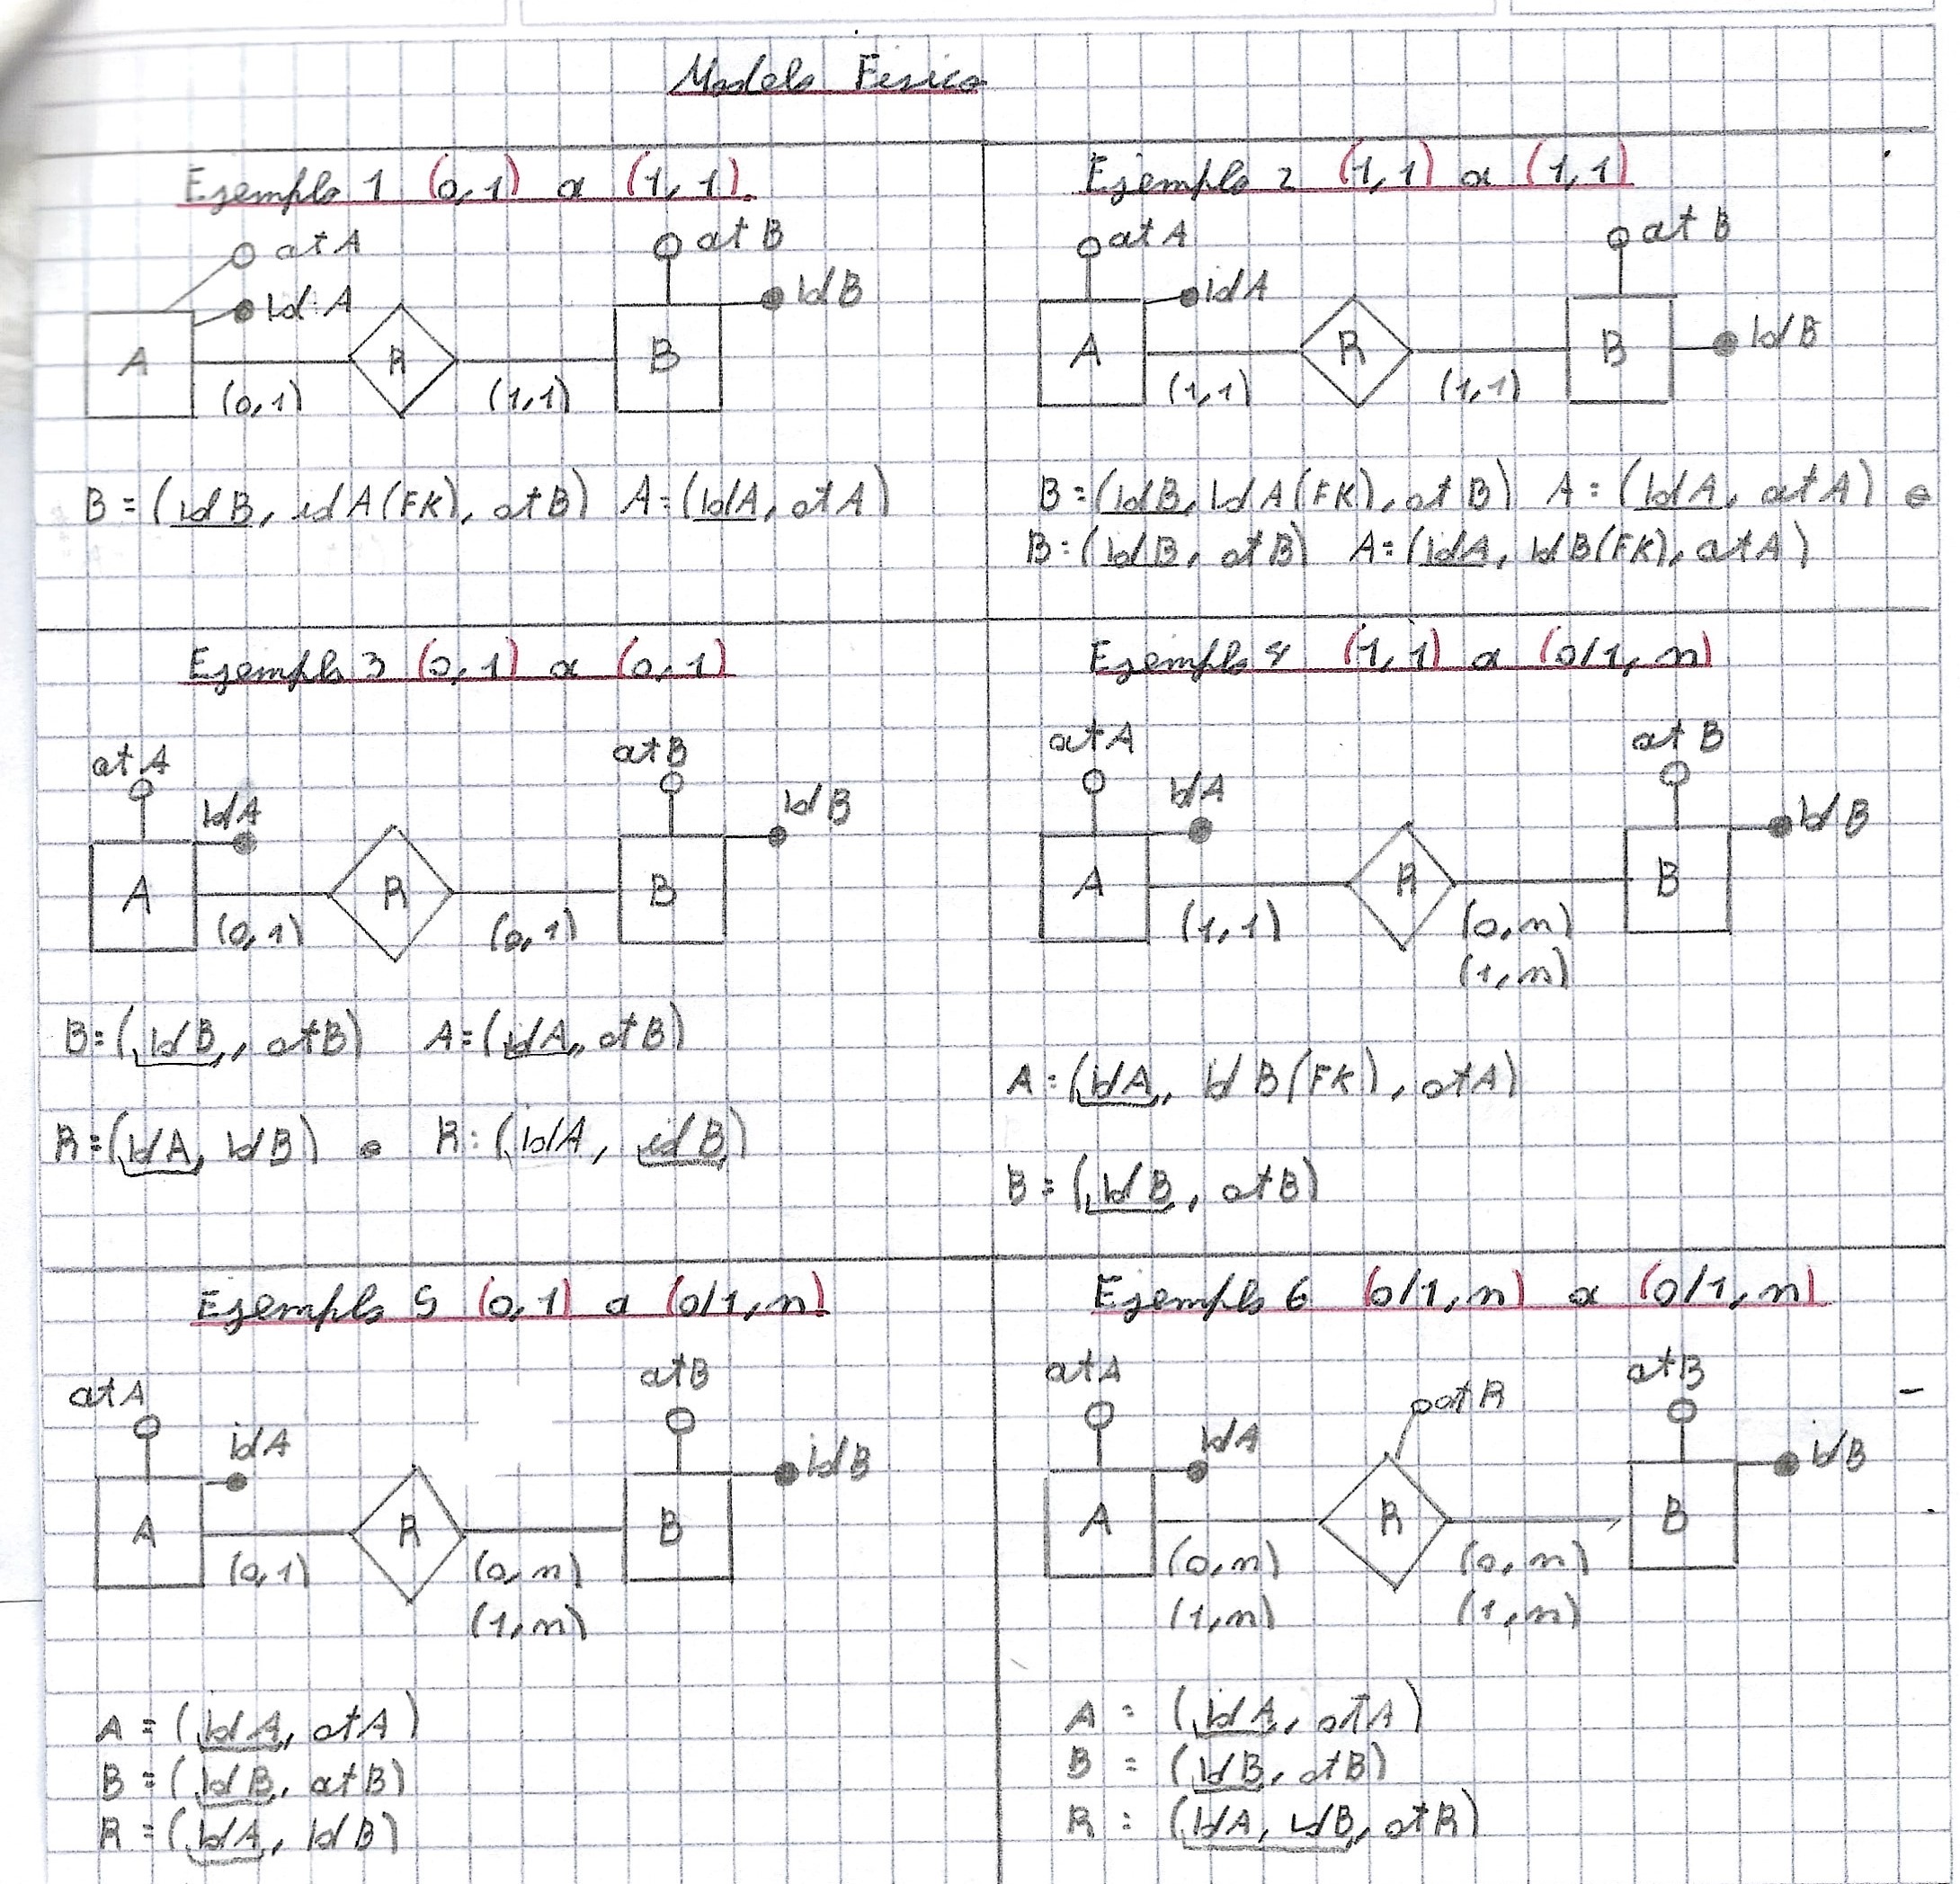 Modelo Fisico
Ejemplo 1 (0,1) a (1,1).
at A
Id A
A
(0,1)
R
(1,1)
at B
Id B
B
B = (Id B, id A (FK), at B) A = (Id A, at A)
Ejemplo 2 (1,1) a (1,1)
at A
id A
A
(1,1)
R
(1,1)
at B
Id B
B
B = (Id B, Id A (FK), at B) A = (Id A, at A) o
B = (Id B, at B) A = (Id A, Id B (FK), at A)
Ejemplo 3 (0,1) a (0,1)
at A
Id A
A
(0,1)
R
(0,1)
at B
Id B
B
B = (Id B, at B) A = (Id A, at B)
R = (Id A, Id B) o R = (Id A, id B)
Ejemplo 4 (1,1) a (0/1, n)
at A
Id A
A
(1,1)
R
(0,n)
(1,n)
at B
Id B
B
A = (Id A, Id B (FK), at A)
B = (Id B, at B)
Ejemplo 5 (0,1) a (0/1, n)
at A
id A
A
(0,1)
R
(0,n)
(1,n)
at B
id B
B
A = (Id A, at A)
B = (Id B, at B)
R = (Id A, Id B)
Ejemplo 6 (0/1, n) a (0/1, n)
at A
Id A
A
(0,n)
(1,n)
at R
R
(0,n)
(1,n)
at B
id B
B
A = (Id A, at A)
B = (Id B, at B)
R = (Id A, id B, at R)